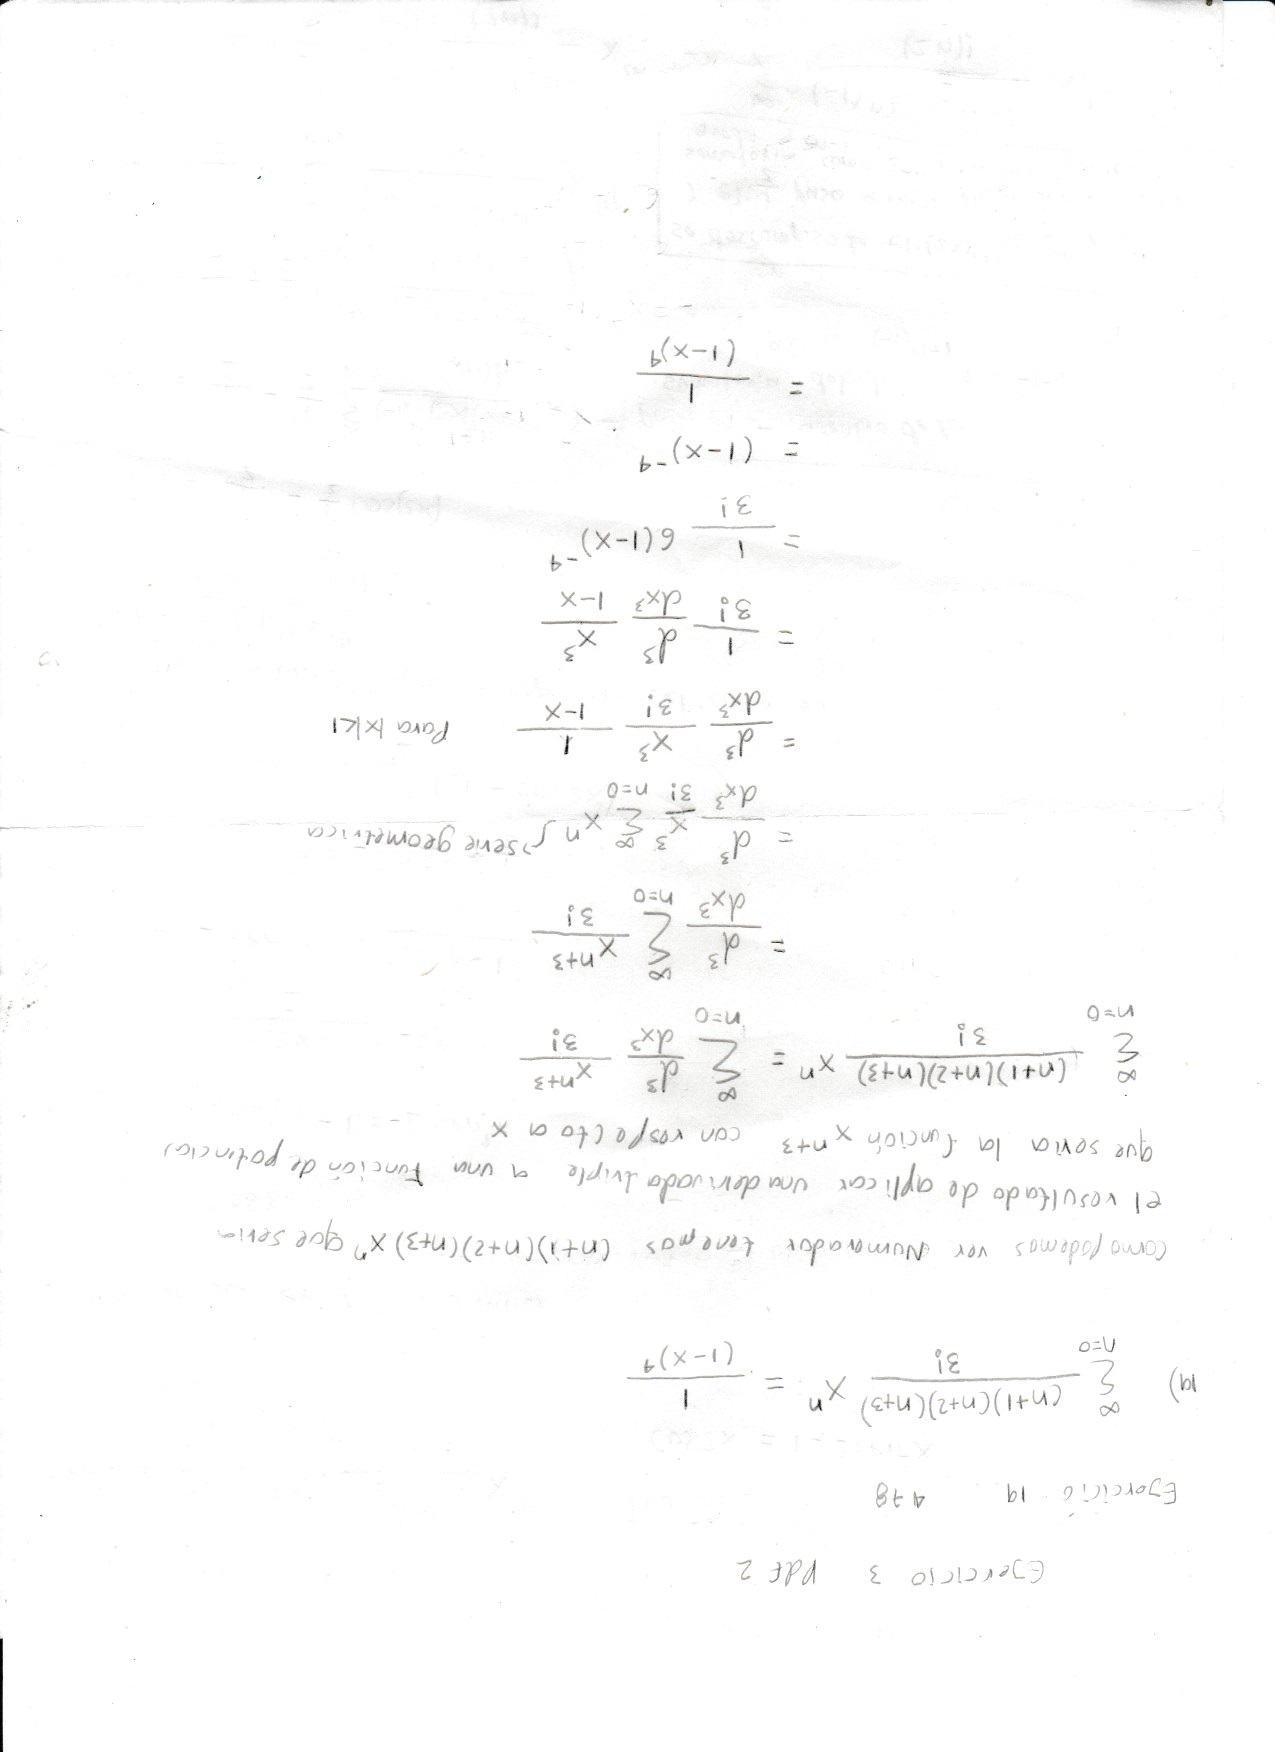 Ejercicio 3 pdf 2
Ejercicio 19 478
19) ∞ ∑ n=0 (n+1)(n+2)(n+3) / 3! x^n = 1 / (1-x)^4
como podemos ver Numerador tenemos (n+1)(n+2)(n+3) x^n que seria
el resultado de aplicar una derivada triple a una función de potencia
que seria la función x^n+3 con respecto a x
∞ ∑ n=0 (n+1)(n+2)(n+3) / 3! x^n = ∞ ∑ n=0 d³/dx³ x^n+3 / 3!
= d³/dx³ ∞ ∑ n=0 x^n+3 / 3!
= d³/dx³ x³/3! ∞ ∑ n=0 x^n serie geometrica
= d³/dx³ x³/3! 1/1-x Para |x|<1
= 1/3! d³/dx³ x³/1-x
= 1/3! 6(1-x)^-4
= (1-x)^-4
= 1 / (1-x)^4